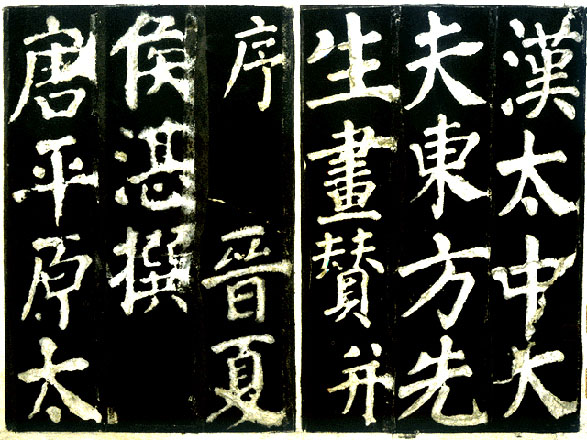 漢太中大
夫東方先
生畫贊并
序　晉夏
侯湛撰
唐平原太